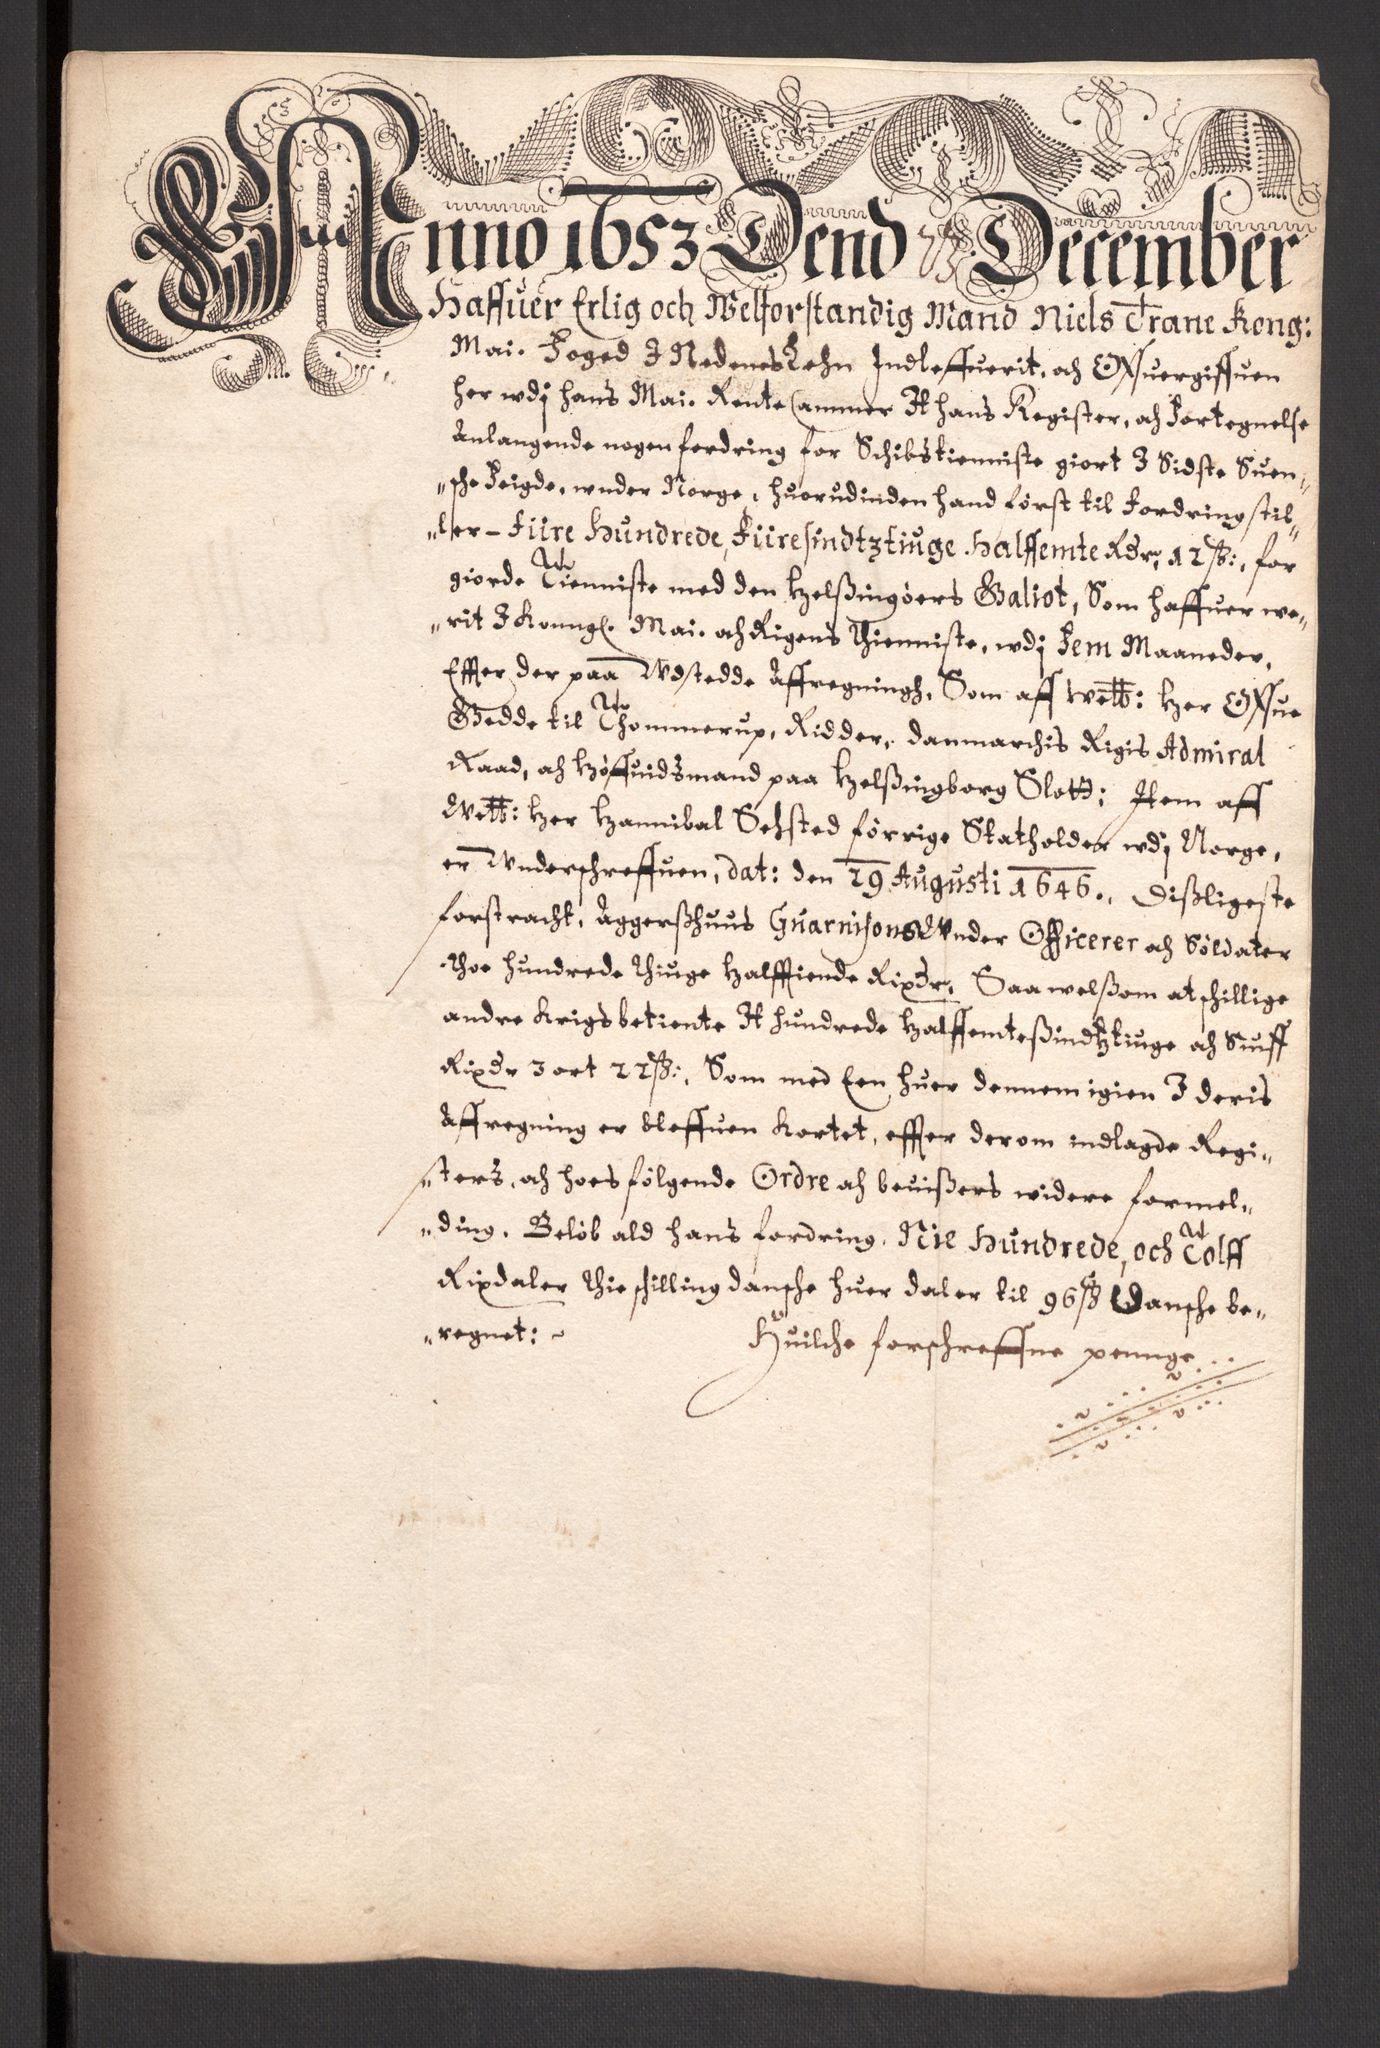 Anno 1653 Dend December
Haffuer Erlig och Welforstandig Mand Niels Trane Kong:
Mai. Foged I Nedenes Lehn Indleffuerit, och Offuergiffuen
her wdj hans Mai. Rente Cammer Et hans Register, och Fortegnelse
Anlangende nogen fordring for Schibstienniste giort I Sidste Suen„
„sche Feigde, wnder Norge, huorudinden hand först til Fordring stil„
„ler – Fiire Hundrede, Fiiresindtztiuge Halffemte Rdr, 12 ß:, for
giorde Tienniste med den Helßingöers Galiot, Som haffuer we„
„rit I Konngl. Mai. och Rigens Thienniste, wdj Fem Maaneder,
Effter der paa Wdstedde Affregningh, Som aff Welb: Her Offue
Gedde til Thommerup, Ridder, danmarchis Rigis Admiral
Raad, och Höffuidsmand paa Helßingborg Slott; Item aff
Welb: Her Hannibal Sehsted förrige Statholder wdj Norge,
er Wnderschreffuen, dat: den 29 Augusti 1646., Dißligeste
forstracht, Aggerßhuus Guarnisons Wnder Officerer och Söldater
Thoe hundrede Thiuge Halffiende Rixdr, Saa welßom atschillige
andre Krigsbetiente Et hundrede Halffemteßindtztiuge och Siuff
Rixdr 3 ort 22 ß:, Som med Een huer dennem igien I deris
Affregning er bleffuen Kortet, effter derom indlagde Regi„
„sters, och hoesfölgende Ordre och beuißers widere formel„
„ding. Belöb ald hans fordring, Nie Hundrede, och Tolff
Rixdaler Thie schilling dansche huer daler til 96 ß Dansche be„
„regnet: ~
Huilche forschreffne pennge